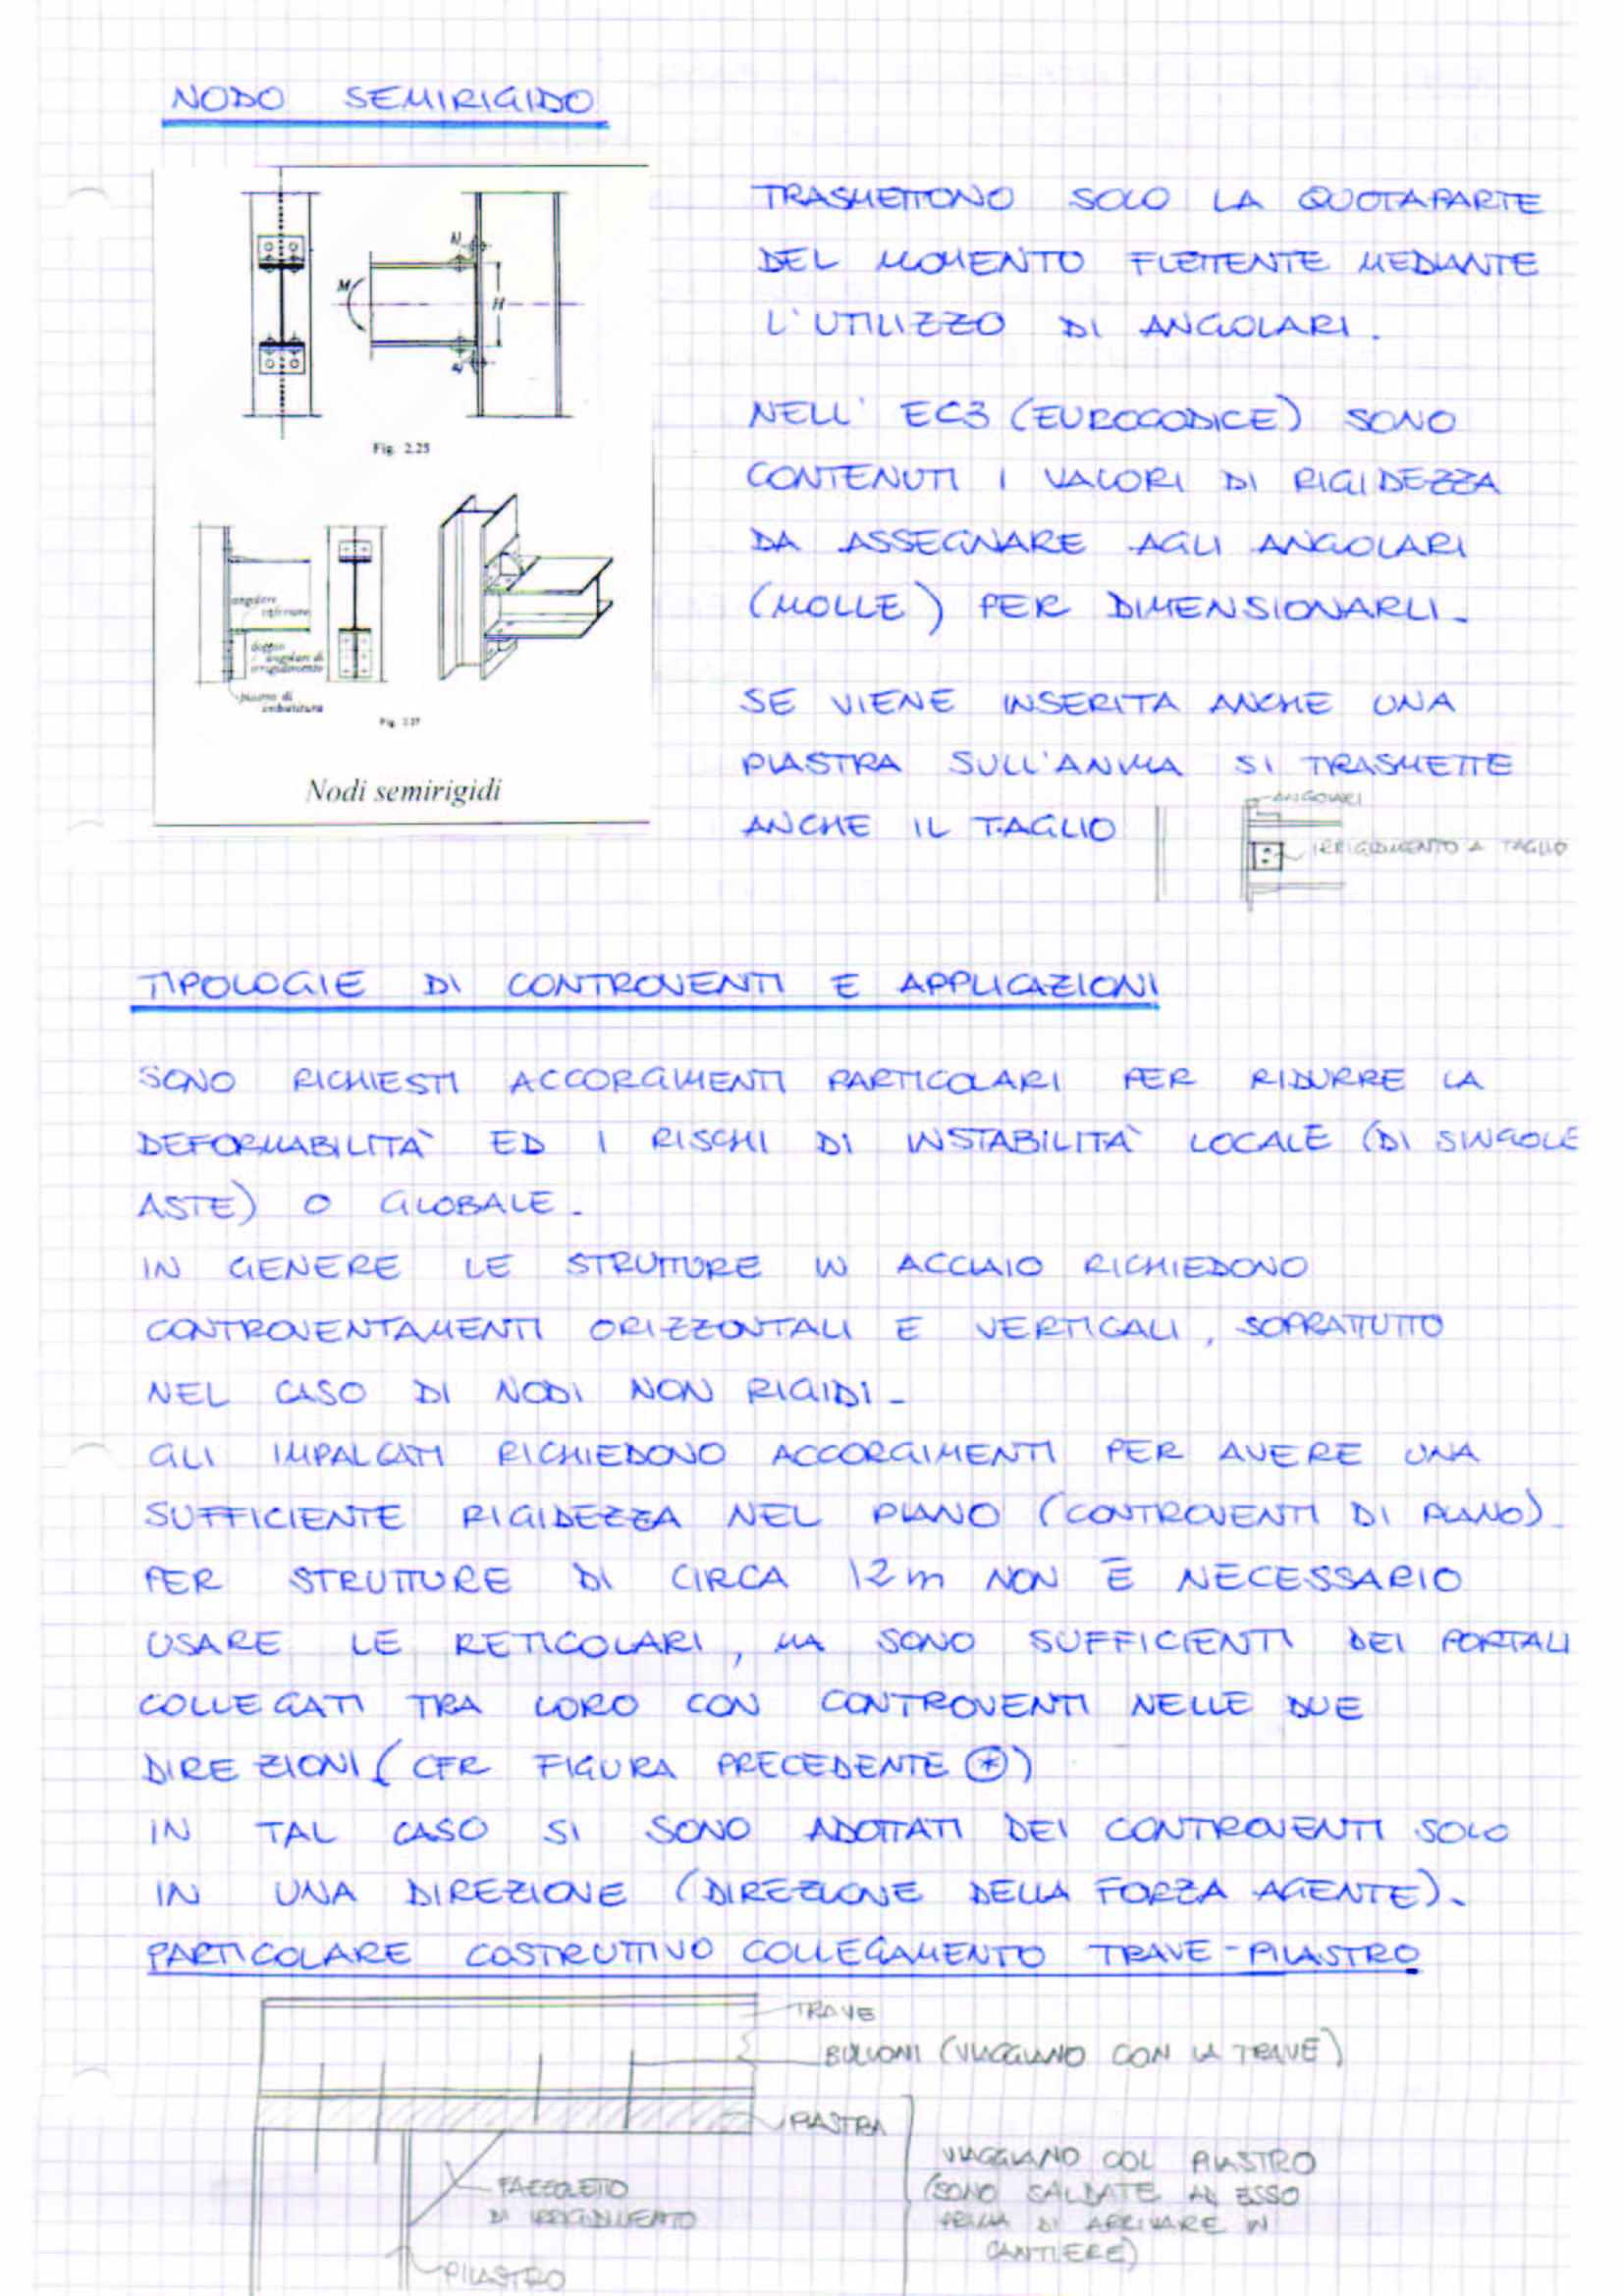 NODO SEMIRIGIDO
M
H
Fig. 2.25
angolare
inferiore
doppio
angolari di
irrigidimento
piastra di
imbottitura
Nodi semirigidi
TRASMETTONO SOLO LA QUOTAPARTE
DEL MOMENTO FLETTENTE MEDIANTE
L'UTILIZZO DI ANGOLARI.
NELL' EC3 (EUROCODICE) SONO
CONTENUTI I VALORI DI RIGIDEZZA
DA ASSEGNARE AGLI ANGOLARI
(MOLLE) PER DIMENSIONARLI.
SE VIENE INSERITA ANCHE UNA
PIASTRA SULL'ANIMA SI TRASMETTE
ANCHE IL TAGLIO
ANGOLARI
IRRIGIDIMENTO A TAGLIO
TIPOLOGIE DI CONTROVENTI E APPLICAZIONI
SONO RICHIESTI ACCORGIMENTI PARTICOLARI PER RIDURRE LA
DEFORMABILITÀ ED I RISCHI DI INSTABILITÀ LOCALE (DI SINGOLE
ASTE) O GLOBALE.
IN GENERE LE STRUTTURE IN ACCIAIO RICHIEDONO
CONTROVENTAMENTI ORIZZONTALI E VERTICALI, SOPRATTUTTO
NEL CASO DI NODI NON RIGIDI.
GLI IMPALCATI RICHIEDONO ACCORGIMENTI PER AVERE UNA
SUFFICIENTE RIGIDEZZA NEL PIANO (CONTROVENTI DI PIANO).
PER STRUTTURE DI CIRCA 12m NON È NECESSARIO
USARE LE RETICOLARI, MA SONO SUFFICIENTI DEI PORTALI
COLLEGATI TRA LORO CON CONTROVENTI NELLE DUE
DIREZIONI (CFR FIGURA PRECEDENTE ⊛)
IN TAL CASO SI SONO ADOTTATI DEI CONTROVENTI SOLO
IN UNA DIREZIONE (DIREZIONE DELLA FORZA AGENTE).
PARTICOLARE COSTRUTTIVO COLLEGAMENTO TRAVE-PILASTRO
TRAVE
BULLONI (VIAGGIANO CON LA TRAVE)
PIASTRA
VIAGGIANO COL PILASTRO
(SONO SALDATE AD ESSO
PRIMA DI ARRIVARE IN
CANTIERE)
FAZZOLETTO
DI IRRIGIDIMENTO
PILASTRO